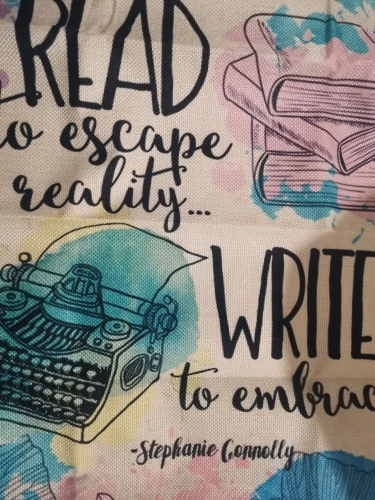 READ
to escape
reality...
WRITE
to embrac
-Stephanie Connolly